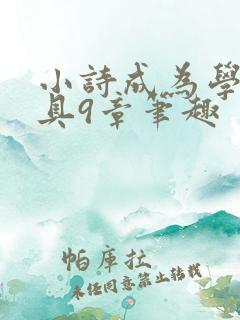 小詩成為學
具9章筆趣
帕庫拉
未经同意禁止转载